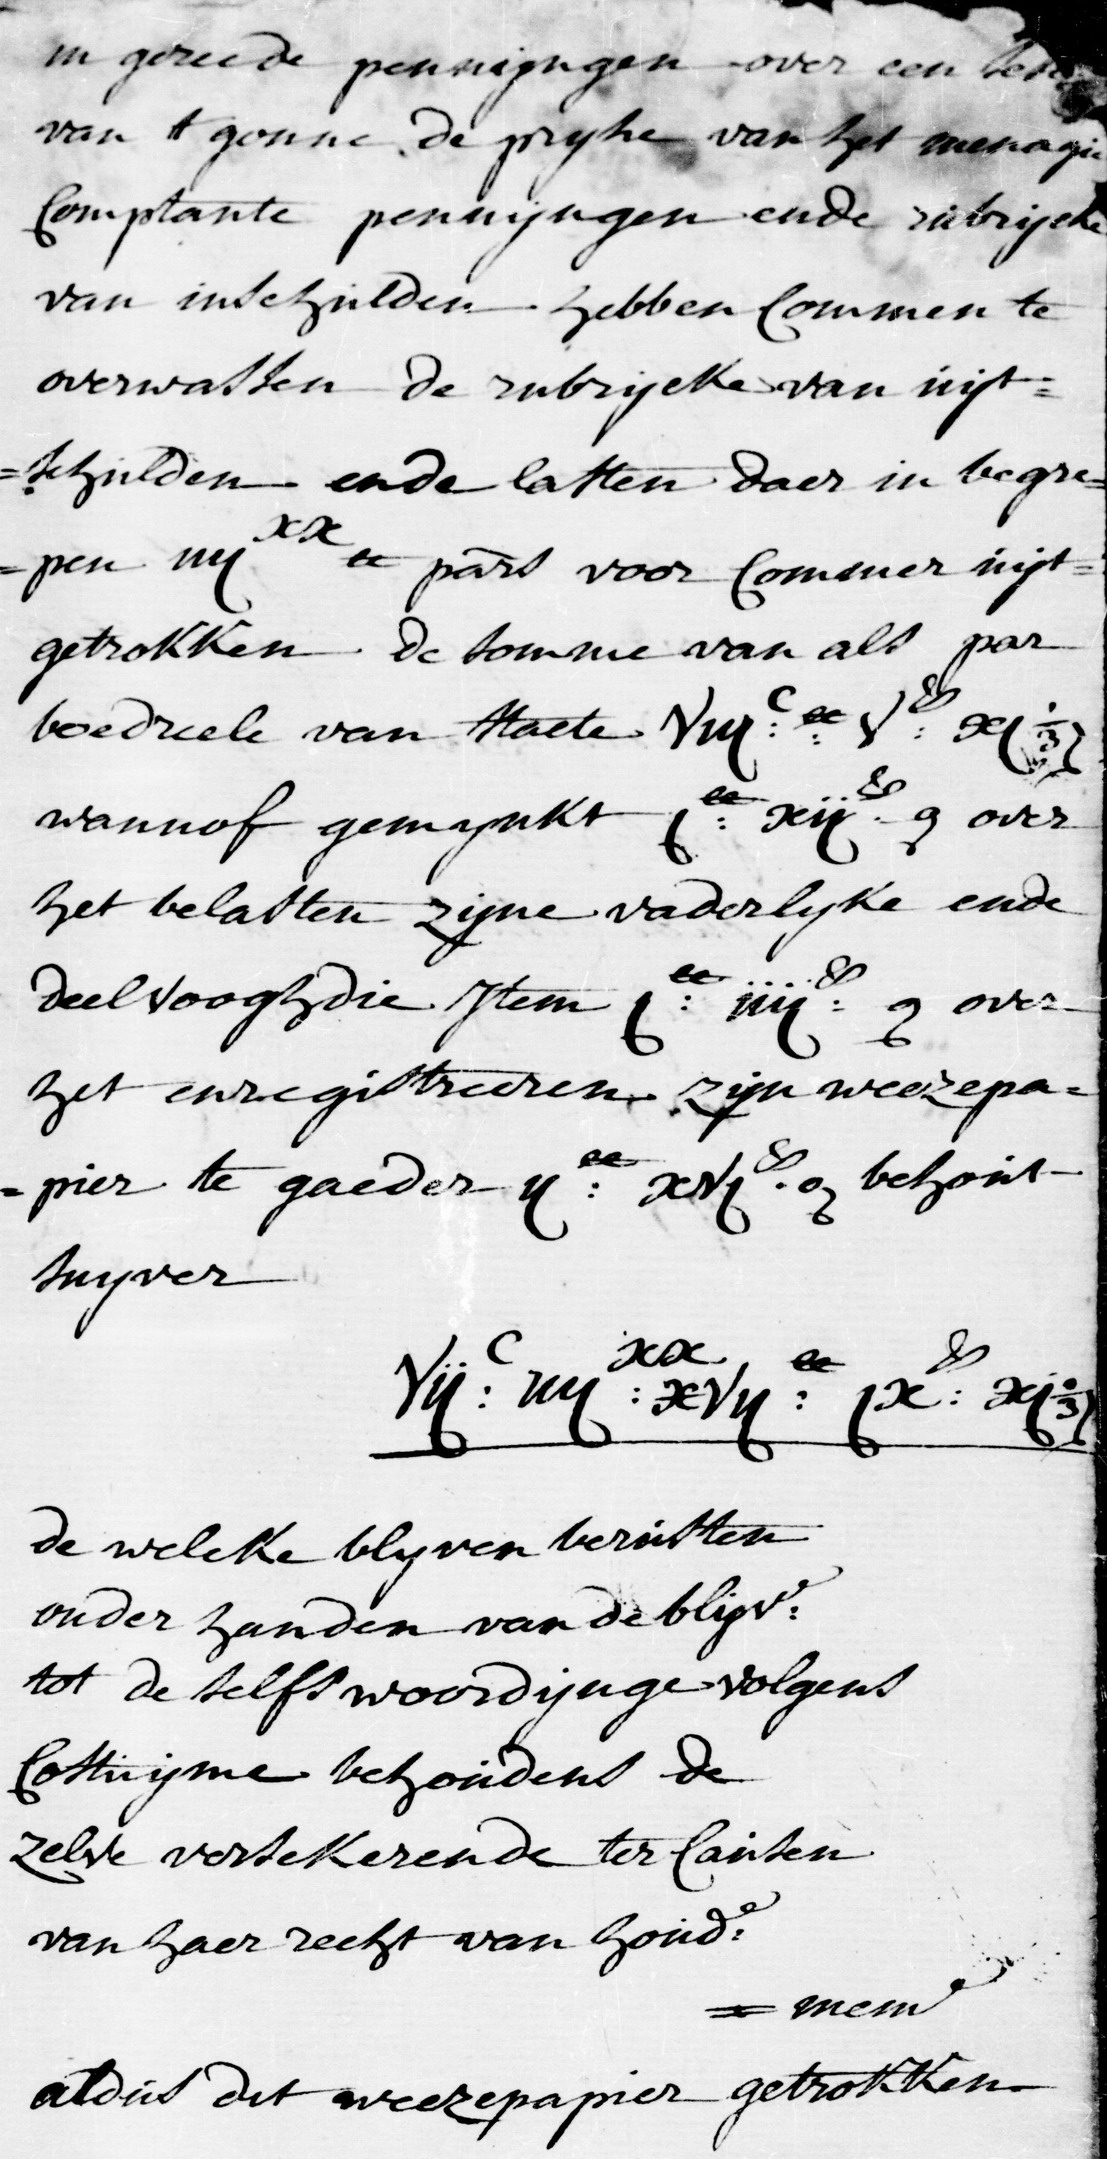 in gereede pennijngen over een
van 't gonne de pryse van het menagie
Comptante pennijngen ende rubrijcke
van inschulden hebben Commen te
overwassen de rubrijcke van uijt=
=schulden ende lasten daer in begre=
=pen iiij xx £ pars voor Commer uijt=
getrokken de somme van als par
boedreele van staete Viij C: £: V s: xj 1/3
wannof gemynkt j £: xij s: g over
het belasten zijne vaderlyke ende
deelvooghdie Item j £: iiij s: g over
het enregistreeren zijn weezepa=
=pier te gaeder ij £: xvj s: g behout
suyver
Vij C: iiij xx: xvij £: jx s: xj 1/3
de welcke blyven berusten
onder handen van de blijve:
tot de selfswoordijnge volgens
Costuijme behoudens de
zelve versekerende ter Causen
van haer recht van houde:
= meme
aldus dit weezepapier getrokken